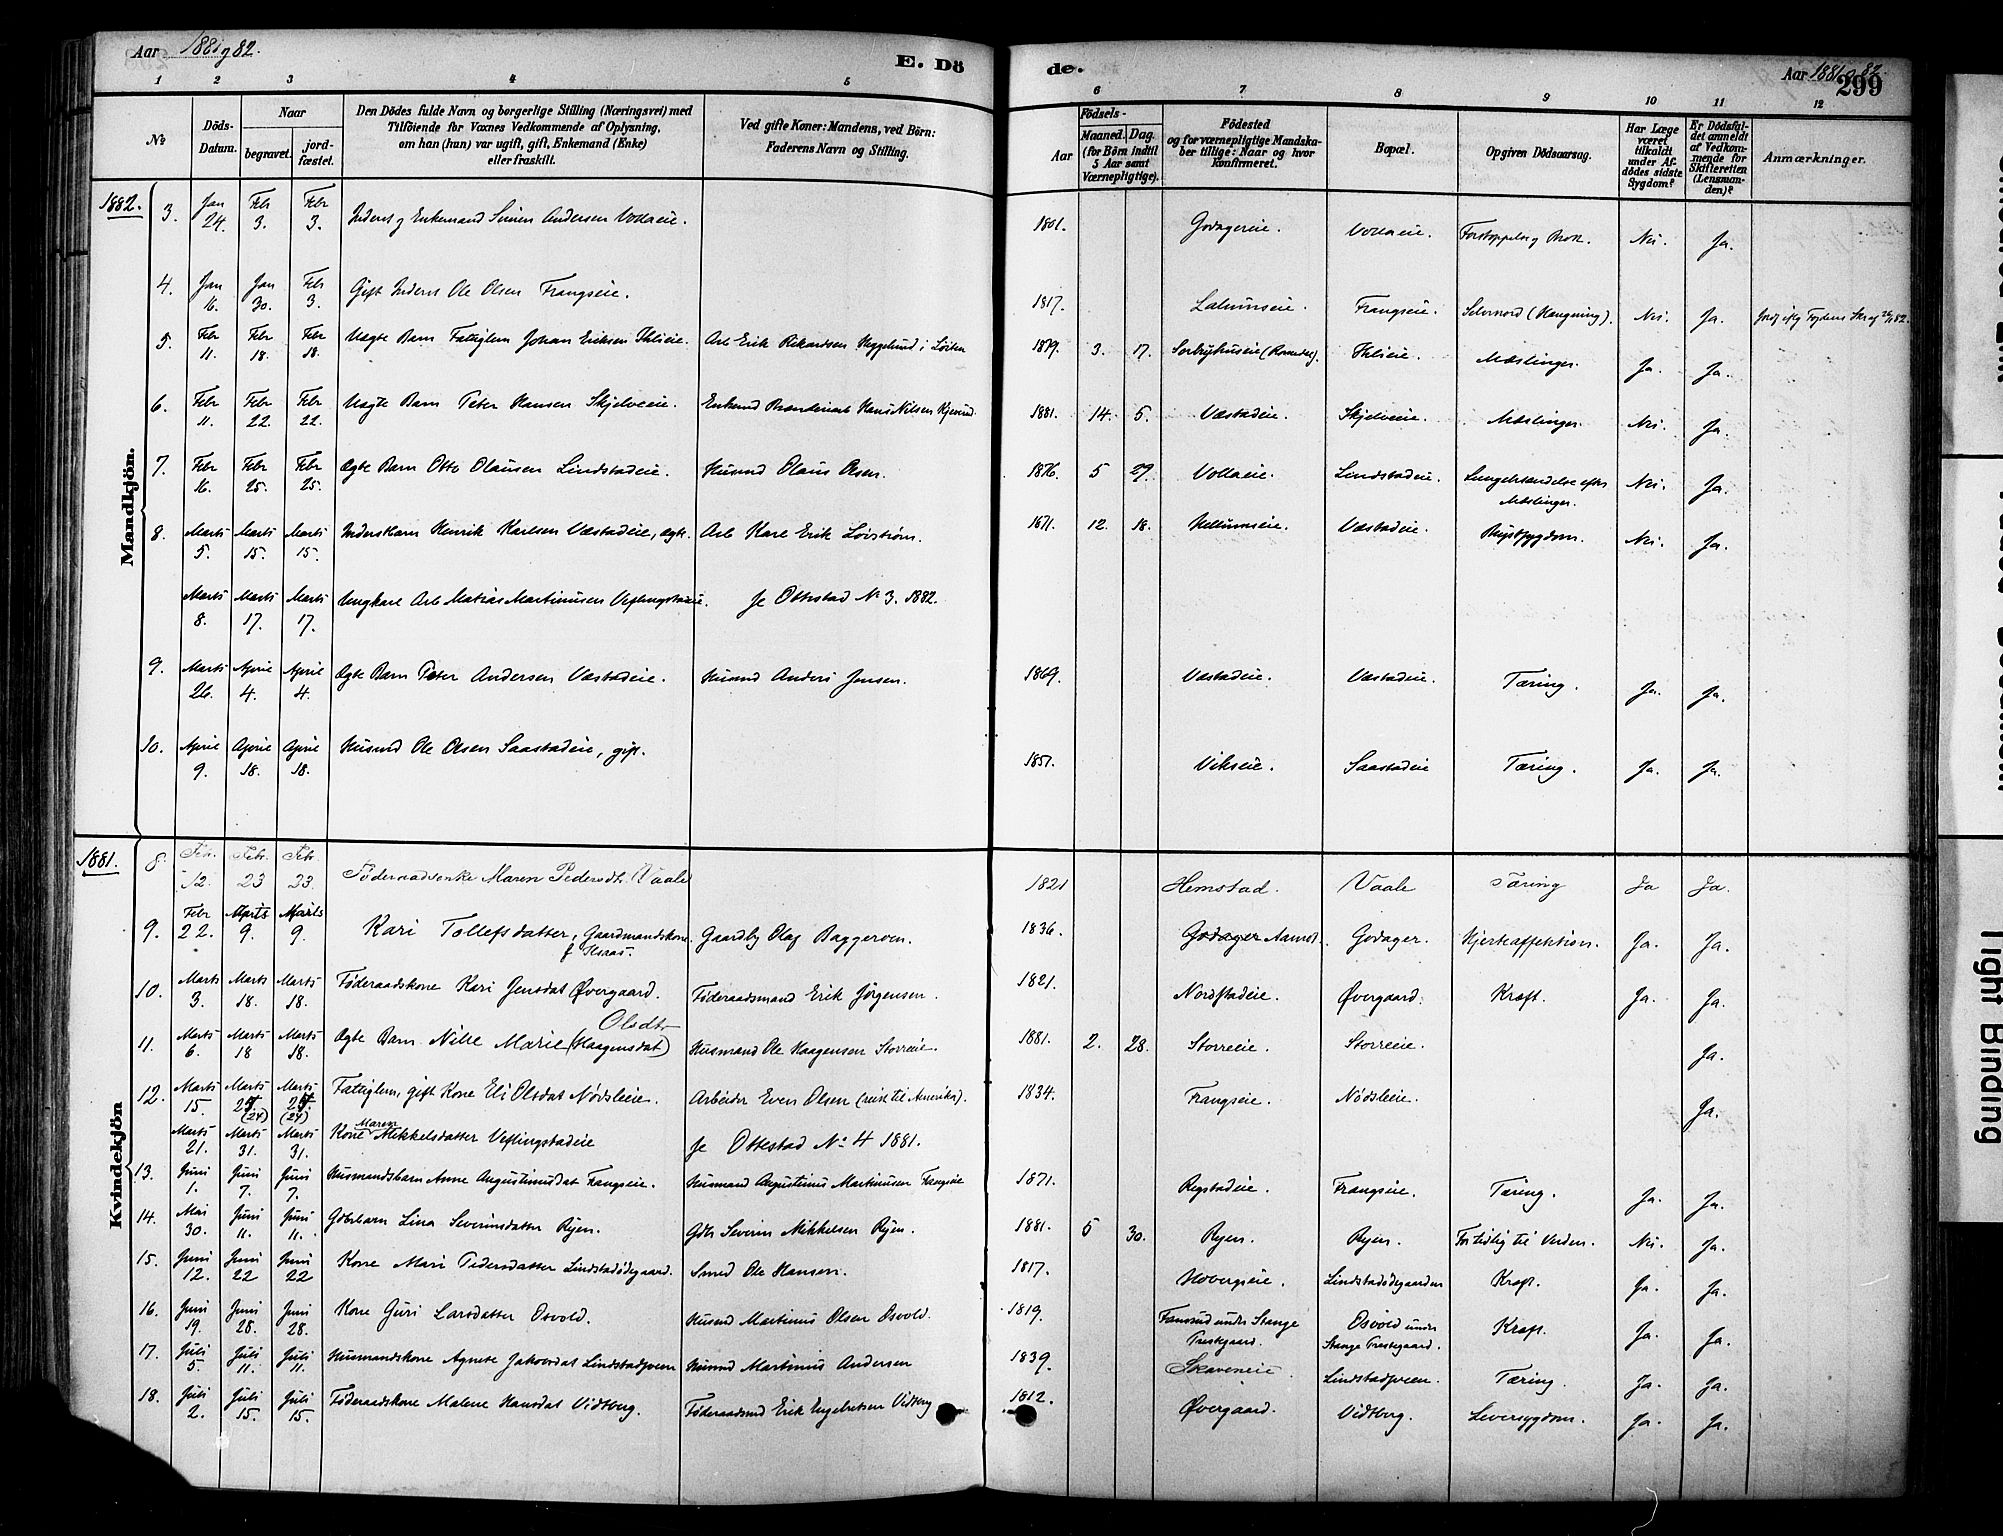 Aar 1881 og 82.
E. Dö
de.
Aar 1881 og 82.
299
1 2 3 4 5 6 7 8 9 10 11 12
No
Döds-Datum.
Naar
begravet.
jord-fæstet.
Den Dödes fulde Navn og borgerlige Stilling (Næringsvei) med
Tilföiende for Voxnes Vedkommende af Oplysning,
om han (hun) var ugift, gift, Enkemand (Enke)
eller fraskilt.
Ved gifte Koner: Mandens, ved Börn:
Faderens Navn og Stilling.
Födsels-
Aar
Maaned. Dag.
(for Börn indtil
5 Aar samt
Værnepligtige).
Födested
og for værnepligtige Mandska-
ber tillige: Naar og hvor
Konfirmeret.
Bopæl.
Opgiven Dödsaarsag.
Har Læge
været
tilkaldt
under Af-
dödes sidste
Sygdom?
Er Dödsfal-
det anmeldt
af Vedkom-
mende for
Skifteretten
(Lensman-
den)?
Anmærkninger.
Mandkjön.
1882. 3. Jan 24. Febr 3. Febr 3. Inderst og Enkemand Simen Andersen Vollaeie. 1801. Godagereie. Vollaeie. Forstoppelse og Brok. Nei. Ja.
4. Jan 16. Jan 30. Febr 3. Gift Inderst Ole Olsen Frangseie. 1817. Lalumseie. Frangseie. Selvmord (Hængning). Nei. Ja.
5. Febr 11. Febr 18. Febr 18. Uægte Barn Fattiglem Johan Eriksen Ihlieie. Arb Erik Rikardsen Hyggelund i Løiten 1879. 3. 17. Ihlieie. Mæslinger. Ja. Ja.
6. Febr 11. Febr 22. Febr 22. Uægte Barn Peter Hansen Skjelveeie. Hans Nilsen 1881. 14. 5. Væstadeie. Skjelveeie. Mæslinger. Nei. Ja.
7. Febr 16. Febr 25. Febr 25. Ægte Barn Otto Olausen Lindstadeie. Husmd Olaus Olsen. 1876. 5 29. Vollaeie. Lindstadeie. Lungebetændelse efter Mæslinger. Nei. Ja.
8. Marts 5. Marts 15. Marts 15. Inderstbarn Henrik Karlsen Væstadeie, ægte. Arb Karl Erik Løvstrøm. 1871. 12. 16. Hellumseie. Væstadeie. Brystsygdom. Nei. Ja.
Marts 8. Marts 17. Marts 17. Ungkarl Arb Matias Martinusen Veflingstadeie. Se Ottestad No 3. 1882.
9. Marts 26. April 4. April 4. Ægte Barn Peter Andersen Væstadeie. Husmd Anders Jensen. 1869. Væstadeie. Væstadeie. Tæring. Ja. Ja.
10. April 9. April 18. April 18. Husmd Ole Olsen Saastadeie, gift. 1851. Vikseie. Saastadeie Tæring. Ja. Ja.
Kvindekjön
1881. 8. Febr. 12. Febr. 23 Febr. 23. Föderaadsenke Maren Pedersdt. Vaale 1821 Hemstad. Vaale Tæring Ja Ja.
9. Febr 22. Marts 9. Marts 9. Kari Tollefsdatter, Gaardmandskone f Haas. Gaardbr Olaf Baggeroen. 1836. Godager Aamot. Godager. Hjerteaffektion. Ja. Ja.
10. Marts 3. Marts 18. Marts 18. Føderaadskone Kari Jensdat Øvergaard. Føderaadsmand Erik Jørgensen. 1821. Nordstadeie. Øvergaard. Kræft. Ja. Ja.
11. Marts 6. Marts 18 Marts 18. Ægte Barn Nille Marie (Haagensdat) Olsdtr Husmand Ole Haagensen Storreeie. 1881. 2. 28. Storreeie. Storreeie. Ja.
12. Marts 15. Marts 25 (24) Marts 25. (24) Fattiglem, gift Kone Eli Olsdat Nødsleeie. Arbeider Even Olsen (reist til Amerika). 1834. Frangseie. Nødsleeie. Ja.
Marts 21. Marts 31. Marts 31. Kone Maren Mikkelsdatter Veflingstadeie Se Ottestad No 4 1881.
13. Juni 1. Juni 7. Juni 7. Husmandsbarn Anne Augustinusdat Frangseie. Husmand Augustinus Martinusen Frangseie 1871. Rogstadeie. Frangseie. Tæring. Ja. Ja.
14. Mai 30. Juni 11. Juni 11. Gdbrbarn Lina Severinsdatter Ryen. Gdbr Severin Mikkelsen Ryen. 1881. 5 30. Ryen. Ryen. For tidlig til Verden. Nei. Ja.
15. Juni 12. Juni 22 Juni 22 Kone Mari Pedersdatter Lindstadødegaard. Smed Ole Hansen. 1817. Hovergseie. Lindstadødegaarden Kræft. Ja. Ja.
16. Juni 19. Juni 28. Juni 28. Kone Guri Larsdatter Osvold. Husmd Martinus Olsen Osvold. 1819. under Stange Prestegaard. Osvold under Stange Prestegaard. Kræft. Ja. Ja.
17. Juli 5 Juli 11. Juli 11. Husmandskone Agnete Jakobsdat Lindstadsveen Husmd Martinius Andersen 1839. Skaveneie. Lindstadsveen. Tæring. Ja. Ja.
18. Juli 2. Juli 15. Juli 15. Føderaadskone Malene Hansdat Vidtberg. Føderaadsmd Erik Engebretsen Vidtberg 1812. Øvergaard. Vidtberg. Leversygdom. Ja. Ja.
Tight Binding